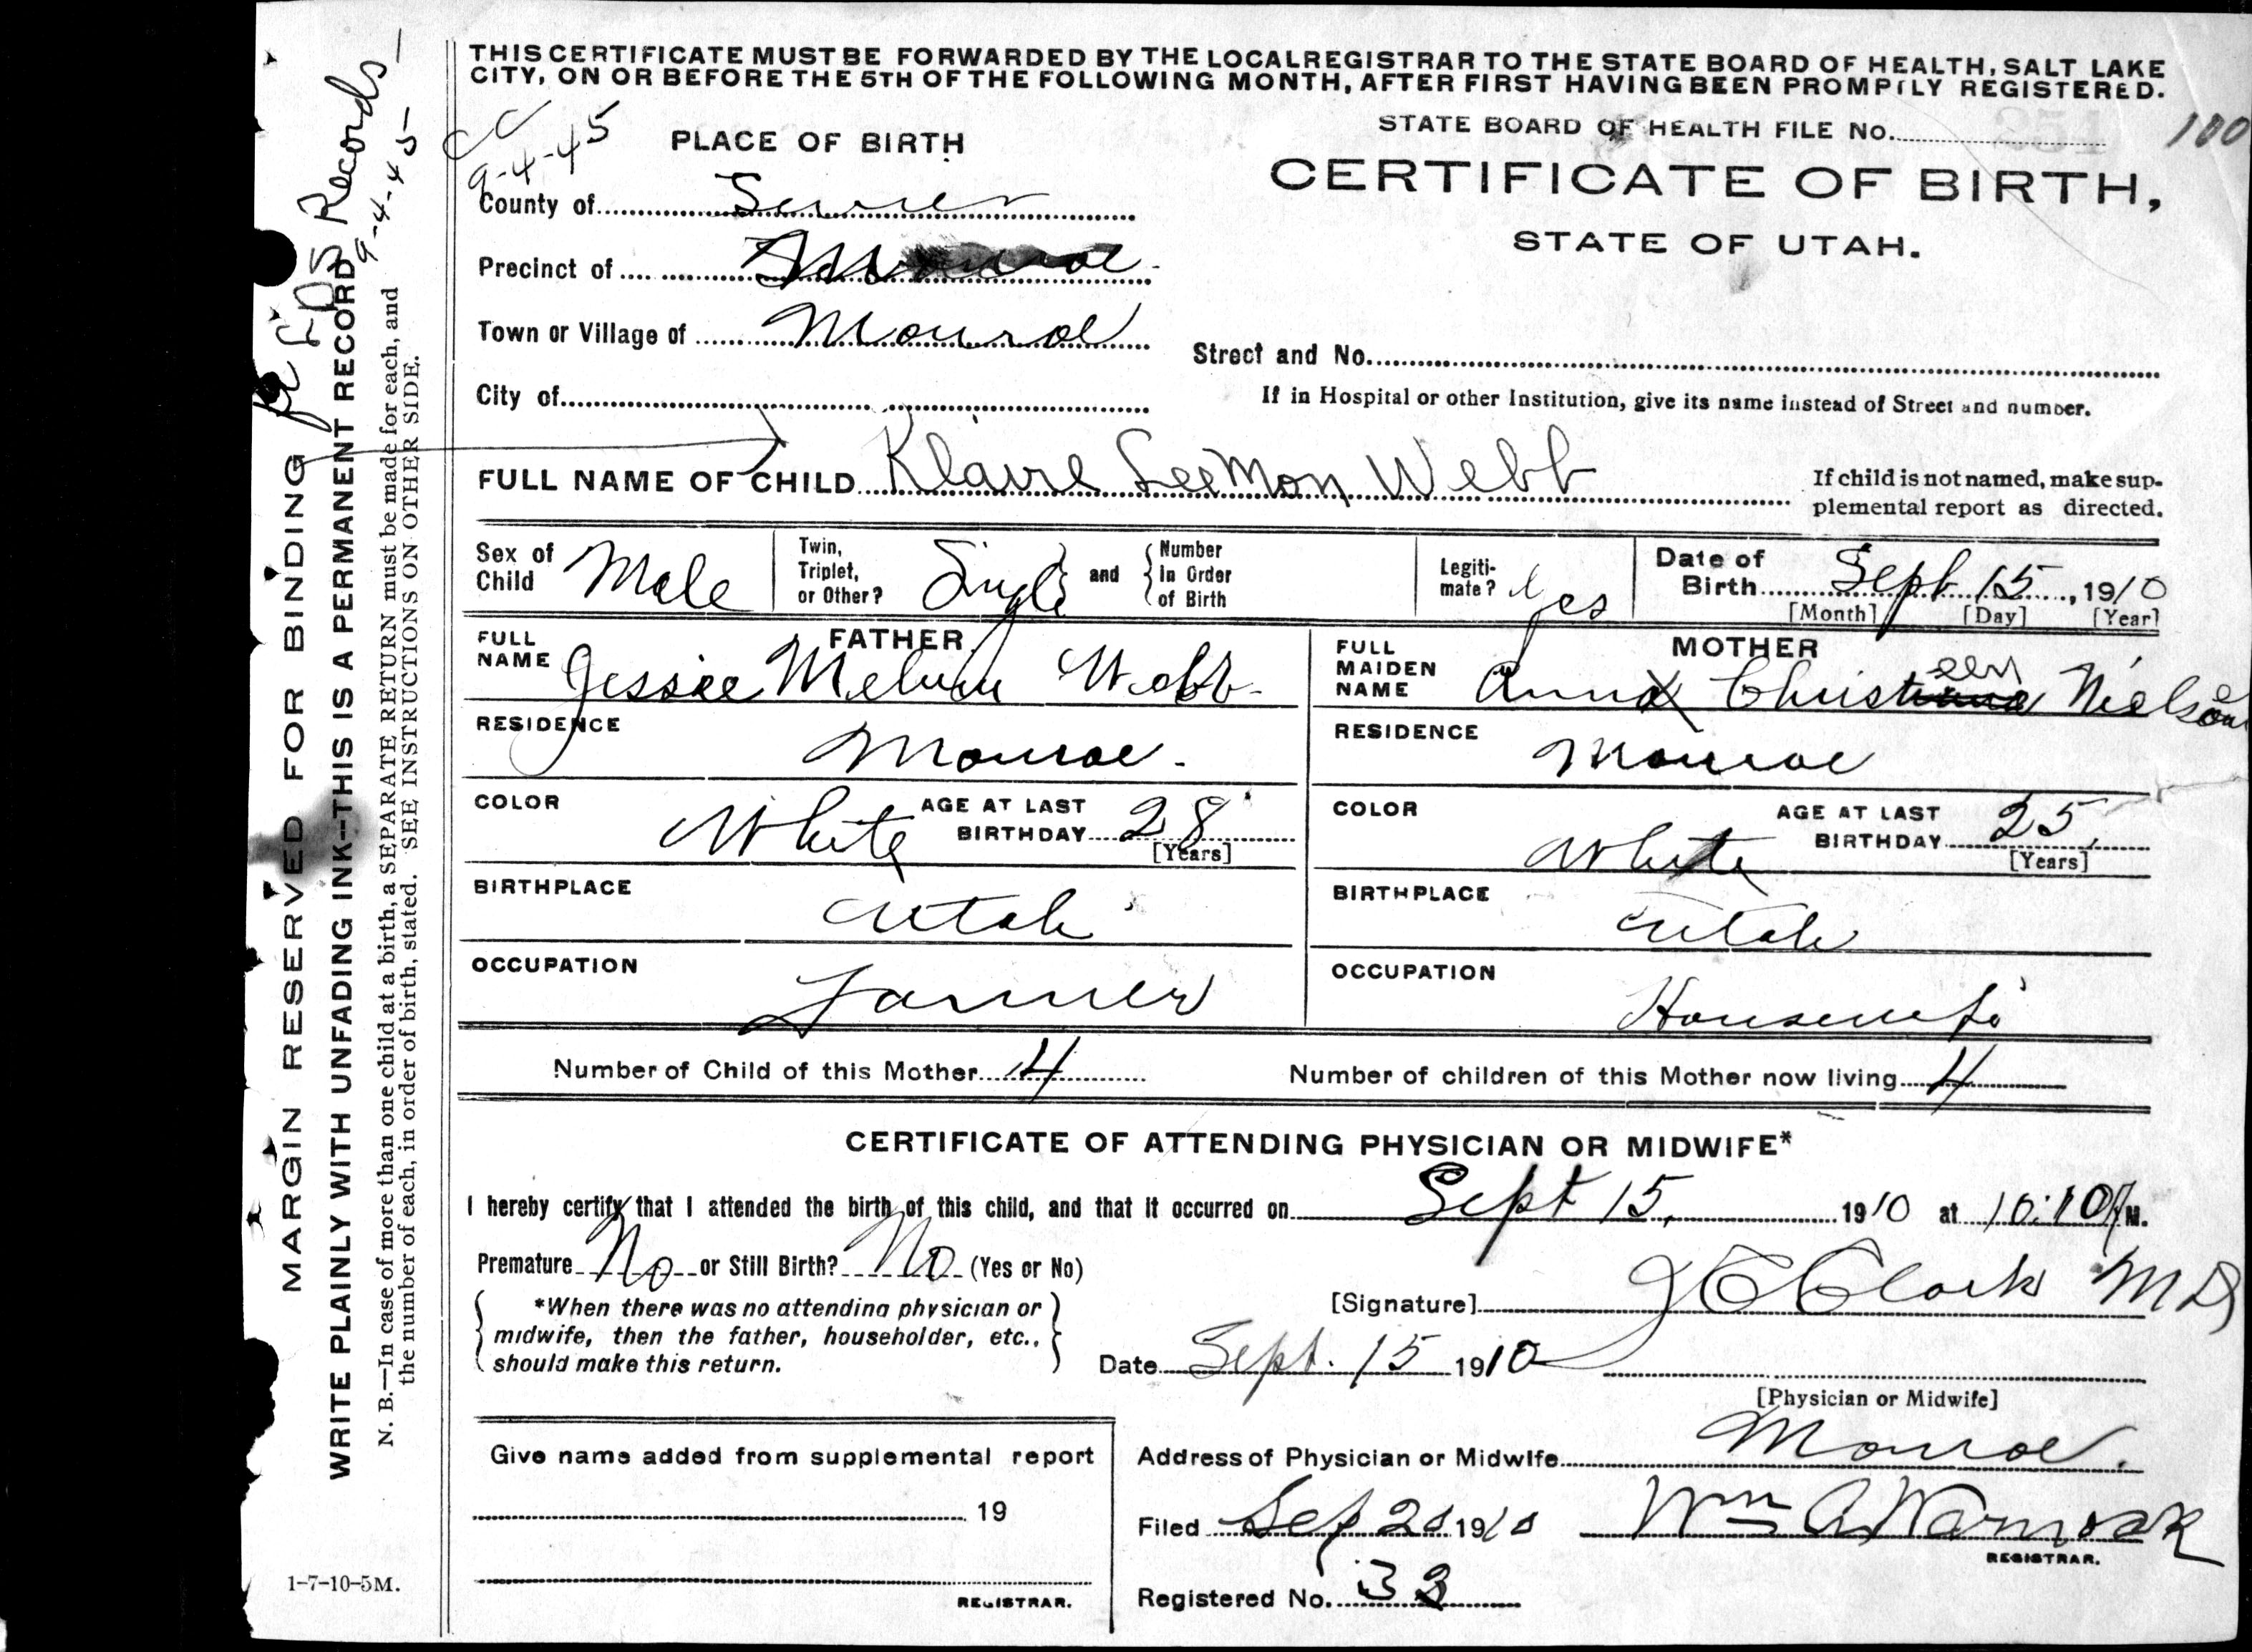 THIS CERTIFICATE MUST BE FORWARDED BY THE LOCAL REGISTRAR TO THE STATE BOARD OF HEALTH, SALT LAKE
CITY, ON OR BEFORE THE 5TH OF THE FOLLOWING MONTH, AFTER FIRST HAVING BEEN PROMPTLY REGISTERED.
CC
9-4-45
PLACE OF BIRTH
STATE BOARD OF HEALTH FILE No.
100
CERTIFICATE OF BIRTH,
STATE OF UTAH.
County of Sevier
Precinct of Monroe
Town or Village of Monroe
Street and No.
City of
If in Hospital or other Institution, give its name instead of Street and number.
FULL NAME OF CHILD Klaire LeeMon Webb
If child is not named, make sup-
plemental report as directed.
Sex of Child Male
Twin, Triplet, or Other? Single
and Number in Order of Birth
Legiti-
mate? Yes
Date of Birth Sept 15, 1910
[Month] [Day] [Year]
FATHER
FULL NAME Jessie Melvin Webb
RESIDENCE Monroe
COLOR White
AGE AT LAST BIRTHDAY 28
[Years]
BIRTHPLACE Utah
OCCUPATION Farmer
MOTHER
FULL MAIDEN NAME Anna Christina Nielson
een
e
RESIDENCE Monroe
COLOR White
AGE AT LAST BIRTHDAY 25
[Years]
BIRTHPLACE Utah
OCCUPATION Housewife
Number of Child of this Mother 4
Number of children of this Mother now living 4
CERTIFICATE OF ATTENDING PHYSICIAN OR MIDWIFE*
I hereby certify that I attended the birth of this child, and that it occurred on Sept 15, 1910 at 10:10 M.
Premature No or Still Birth? No (Yes or No)
*When there was no attending physician or
midwife, then the father, householder, etc.,
should make this return.
[Signature] Clark MD
Date Sept. 15 1910
[Physician or Midwife]
Give name added from supplemental report
19
REGISTRAR.
Address of Physician or Midwife Monroe.
Filed Sep 20 1910
Wm A Warnock
REGISTRAR.
Registered No. 33
MARGIN RESERVED FOR BINDING
WRITE PLAINLY WITH UNFADING INK--THIS IS A PERMANENT RECORD
N. B.—In case of more than one child at a birth, a SEPARATE RETURN must be made for each, and
the number of each, in order of birth, stated. SEE INSTRUCTIONS ON OTHER SIDE.
LDS Records
9-4-45
1-7-10-5M.